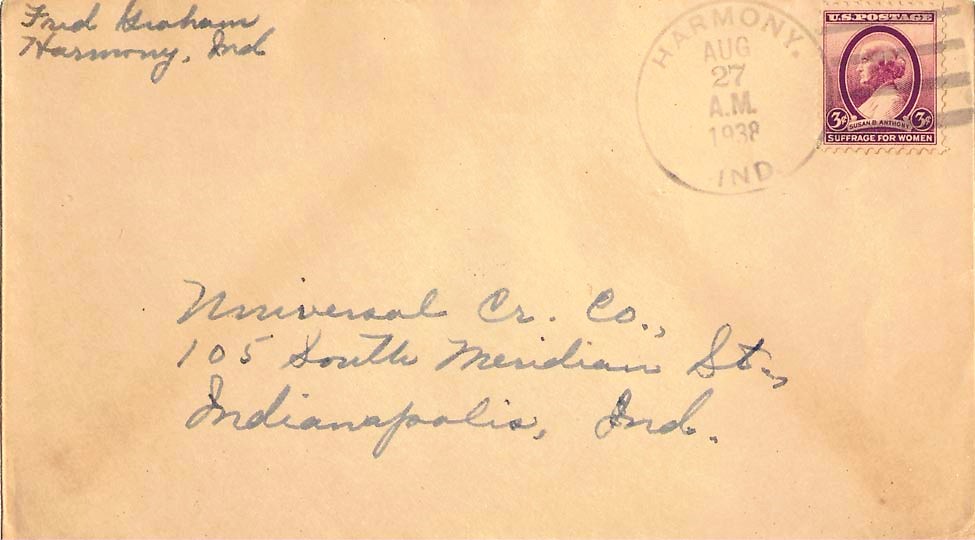 Fred Graham
Harmony, Ind
HARMONY.
AUG
27
A.M.
1938
IND.
U.S. POSTAGE
3¢ SUSAN B. ANTHONY 3¢
SUFFRAGE FOR WOMEN
Universal Cr. Co.,
105 South Meridian St.,
Indianapolis, Ind.